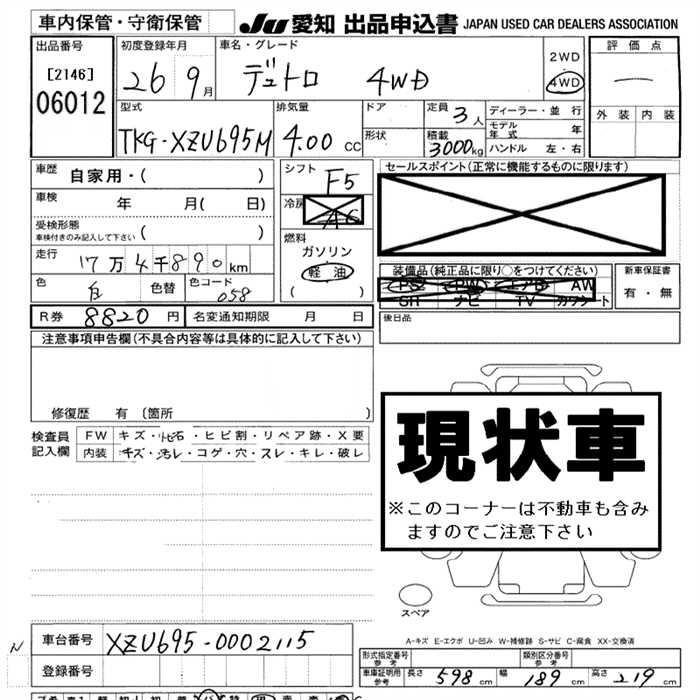 車内保管・守衛保管
JU 愛知 出品申込書 JAPAN USED CAR DEALERS ASSOCIATION
出品番号
[2146]
06012
初度登録年月
26 9月
車名・グレード
デュトロ 4WD
2WD
4WD
評価点
外装 内装
型式
TKG-XZU695M
排気量
4.00 cc
ドア
形状
定員 3人
積載 3000kg
ディーラー・並行
モデル年式 年
ハンドル 左・右
車歴 自家用・( )
車検 年 月( 日)
受検形態
車検付きのみ記入して下さい ( )
走行 17万4千890km
色 白 色替 色コード 058
シフト F5
冷房 AC
燃料
ガソリン
軽油
( )
セールスポイント(正常に機能するものに限ります)
装備品(純正品に限り○をつけてください)
PS PW エアB AW
SR ナビ TV カワシート
新車保証書
有・無
R券 8820円 名変通知期限 月 日
後日品
注意事項申告欄(不具合内容等は具体的に記入して下さい)
修復歴 有 〔箇所 〕
検査員記入欄
FW キズ・飛石・ヒビ割・リペア跡・X要
内装 キズ・汚レ・コゲ・穴・スレ・キレ・破レ
現状車
※このコーナーは不動車も含み
ますのでご注意下さい
スペア
A-キズ E-エクボ U-凹み W-補修跡 S-サビ C-腐食 XX-交換済
N 車台番号 XZU695-0002115
登録番号
形式指定番号 参考
類別区分番号 参考
車庫証明用 参考 長さ 598cm 幅 189cm 高さ 219cm